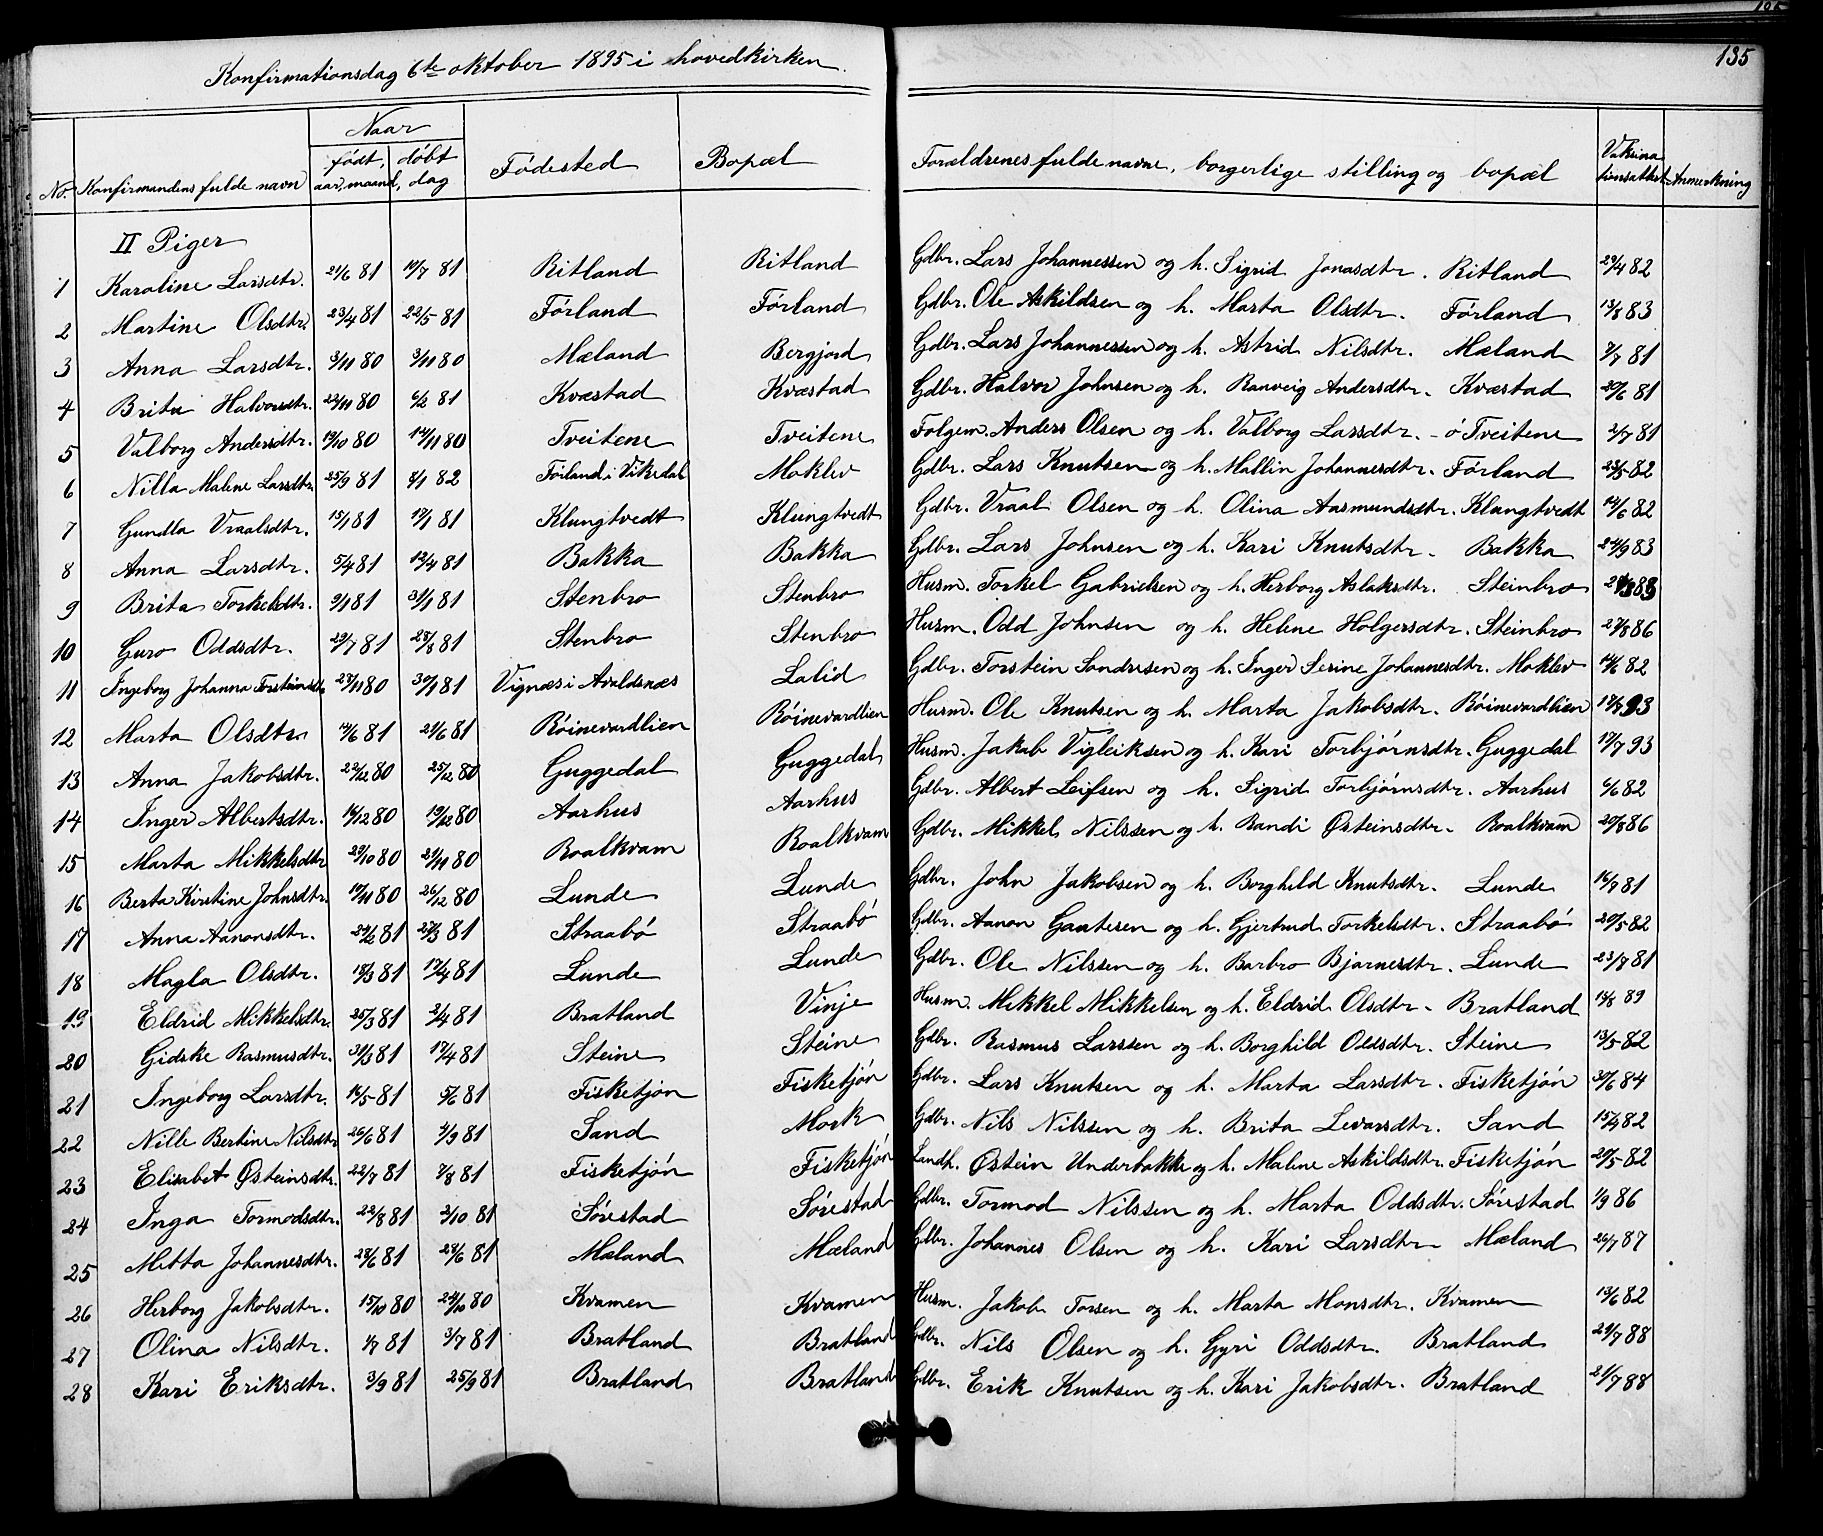 135
Konfirmationsdag 6te oktober 1895 i hovedkirken.
No. Konfirmandens fulde navn Naar født, døbt aar, maaned, dag Fødested Bopæl Forældrenes fulde navne, borgerlige stilling og bopæl Vaksinationsattest Anmerkning
II Piger
1 Karoline Larsdtr. 21/6 81 17/7 81 Ritland Ritland Gdbr. Lars Johannessen og h. Sigrid Jonasdtr. Ritland 29/4 82
2 Martine Olsdtr. 23/4 81 22/5 81 Førland Førland Gdbr. Ole Askildsen og h. Marta Olsdtr. Førland 13/8 83
3 Anna Larsdtr. 3/11 80 3/11 80 Mæland Bergjord Gdbr. Lars Johannessen og h. Astrid Nilsdtr. Mæland 7/7 81
4 Brita Halvorsdtr. 22/11 80 6/2 81 Kvæstad Kvæstad Gdbr. Halvor Johnsen og h. Ranveig Andersdtr. Kvæstad 20/6 81
5 Valborg Andersdtr. 19/10 80 14/11 80 Tveitene Tveitene Følgem. Anders Olsen og h. Valborg Larsdtr. - ø Tveitene 2/7 81
6 Nilla Malene Larsdtr. 25/9 81 8/1 82 Førland i Vikedal Moklev Gdbr. Lars Knutsen og h. Mallin Johannesdtr. Førland 23/5 82
7 Gundla Vraalsdtr. 15/1 81 17/1 81 Klungtvedt Klungtvedt Gdbr. Vraal Olsen og h. Olina Aasmundsdtr. Klungtvedt 14/6 82
8 Anna Larsdtr. 5/4 81 12/4 81 Bakka Bakka Gdbr. Lars Johnsen og h. Kari Knutsdtr. Bakka 24/9 83
9 Brita Torkelsdtr. 9/1 81 31/1 81 Stenbro Stenbro Husm. Torkel Gabrielsen og h. Herborg Aslaksdtr. Steinbro
10 Guro Oddsdtr. 29/7 81 28/8 81 Stenbro Stenbro Husm. Odd Johnsen og h. Helene Holgersdtr. Steinbro 27/8 86
11 Ingeborg Johanna Torsteinsdtr. 27/11 80 30/1 81 Vignæs i Avaldsnæs Lalid Gdbr. Torstein Sondresen og h. Inger Serine Johannesdtr. Moklev 14/6 82
12 Marta Olsdtr. 14/6 81 29/6 81 Röinevardlien Röinevardlien Husm. Ole Knutsen og h. Marta Jakobsdtr. Röinevardlien 18/8 93
13 Anna Jakobsdtr. 22/12 80 25/12 80 Guggedal Guggedal Husm. Jakob Vigleiksen og h. Kari Torbjørnsdtr. Guggedal 17/7 93
14 Inger Albertsdtr. 14/12 80 19/12 80 Aarhus Aarhus Gdbr. Albert Leifsen og h. Sigrid Torbjørnsdtr. Aarhus 6/6 82
15 Marta Mikkelsdtr 29/10 80 21/11 80 Roalkvam Roalkvam Gdbr. Mikkel Nilssen og h. Randi Østeinsdtr. Roalkvam 20/8 86
16 Berta Kirstine Johnsdtr. 19/11 80 26/12 80 Lunde Lunde Gdbr. John Jakobsen og h. Borghild Knutsdtr. Lunde 14/7 81
17 Anna Aanonsdtr. 24/2 81 27/3 81 Straabö Straabö Gdbr. Aanon Gautesen og h. Gjertrud Torkelsdtr. Straabö 20/5 82
18 Magla Olsdtr. 18/3 81 17/4 81 Lunde Lunde Gdbr. Ole Nilssen og h. Barbro Bjarnesdtr. Lunde 23/7 81
19 Eldrid Mikkelsdtr. 25/3 81 3/4 81 Bratland Vinje Husm. Mikkel Mikkelsen og h. Eldrid Olsdtr. Bratland 14/8 89
20 Gidske Rasmusdtr. 31/3 81 17/4 81 Steine Steine Gdbr. Rasmus Larssen og h. Borghild Oldsdtr. Steine 13/5 82
21 Ingeborg Larsdtr. 16/5 81 5/6 81 Fisketjön Fisketjön Gdbr. Lars Knutsen og h. Marta Larsdtr. Fisketjön 30/6 84
22 Nille Bertine Nilsdtr 26/6 81 4/9 81 Sand Mork Gdbr. Nils Nilssen og h. Brita Levarsdtr. Sand 15/4 82
23 Elisabet Østeinsdtr. 22/7 81 7/8 81 Fisketjón Fisketjón Landh. Østein Underbakke og h. Malene Askildsdtr. Fisketjón 20/5 82
24 Inga Tormodsdtr. 22/8 81 2/10 81 Sørestad Sørestad Gdbr. Tormod Nilssen og h. Marta Oddsdtr. Sørestad 1/9 86
25 Metta Johannesdtr. 23/6 81 28/6 81 Mæland Mæland Gdbr. Johannes Olsen og h. Kari Larsdtr. Mæland 26/7 87
26 Herborg Jakobsdtr. 15/10 80 24/10 80 Kvamen Kvamen Husm. Jakob Torsen og h. Marta Monsdtr. Kvamen 13/6 82
27 Olina Nilsdtr. 1/7 81 3/7 81 Bratland Bratland Gdbr. Nils Olsen og h. Gyri Oddsdtr. Bratland 21/7 88
28 Kari Eriksdtr. 3/9 81 25/9 81 Bratland Bratland Gdbr. Erik Knutsen og h. Kari Jakobsdtr. Bratland 21/7 88